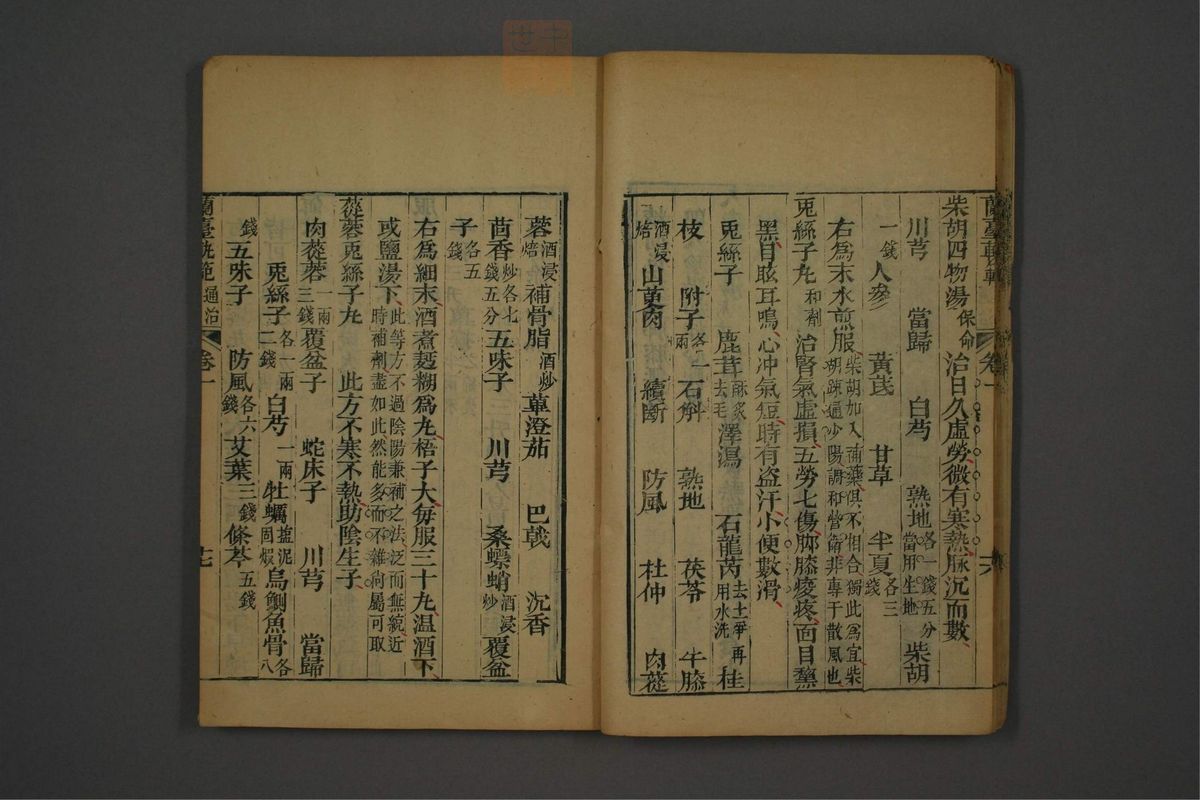 蘭臺軌範 卷一 六
柴胡四物湯保命 治日久虛勞微有寒熱脉沉而數
川芎 當歸 白芍 熟地各一錢五分當用生地 柴胡
一錢 人參 黃芪 甘草 半夏各三錢
右為末水煎服柴胡加入補藥俱不相合獨此為宜柴胡疎通少陽調和營衛非專于散風也
兎絲子丸和劑 治腎氣虛損五勞七傷脚膝痠疼面目黧
黑目眩耳鳴心冲氣短時有盜汗小便數滑
兎絲子 鹿茸酥炙去毛 澤瀉 石龍芮去土爭再用水洗 桂
枝 附子各一兩 石斛 熟地 茯苓 牛膝
酒浸焙 山萸肉 續斷 防風 杜仲 肉蓯
蓉酒浸焙 補骨脂酒炒 蓽澄茄 巴戟 沉香
茴香炒各七錢五分 五味子 川芎 桑螵蛸酒浸炒 覆盆
子各五錢
右為細末酒煮麪糊為丸梧子大每服三十丸温酒下
或鹽湯下此等方不過陰陽兼補之法泛而無統近時補劑盡如此然能多而不雜尚屬可取
蓯蓉兎絲子丸 此方不寒不熱助陰生子
肉蓯蓉一兩三錢 覆盆子 蛇床子 川芎 當歸
兎絲子各一兩二錢 白芍一兩 牡蠣塩泥固煆 烏鰂魚骨各八
錢 五味子 防風各六錢 艾葉三錢 條芩五錢
蘭臺軌範 通治 卷一 十七